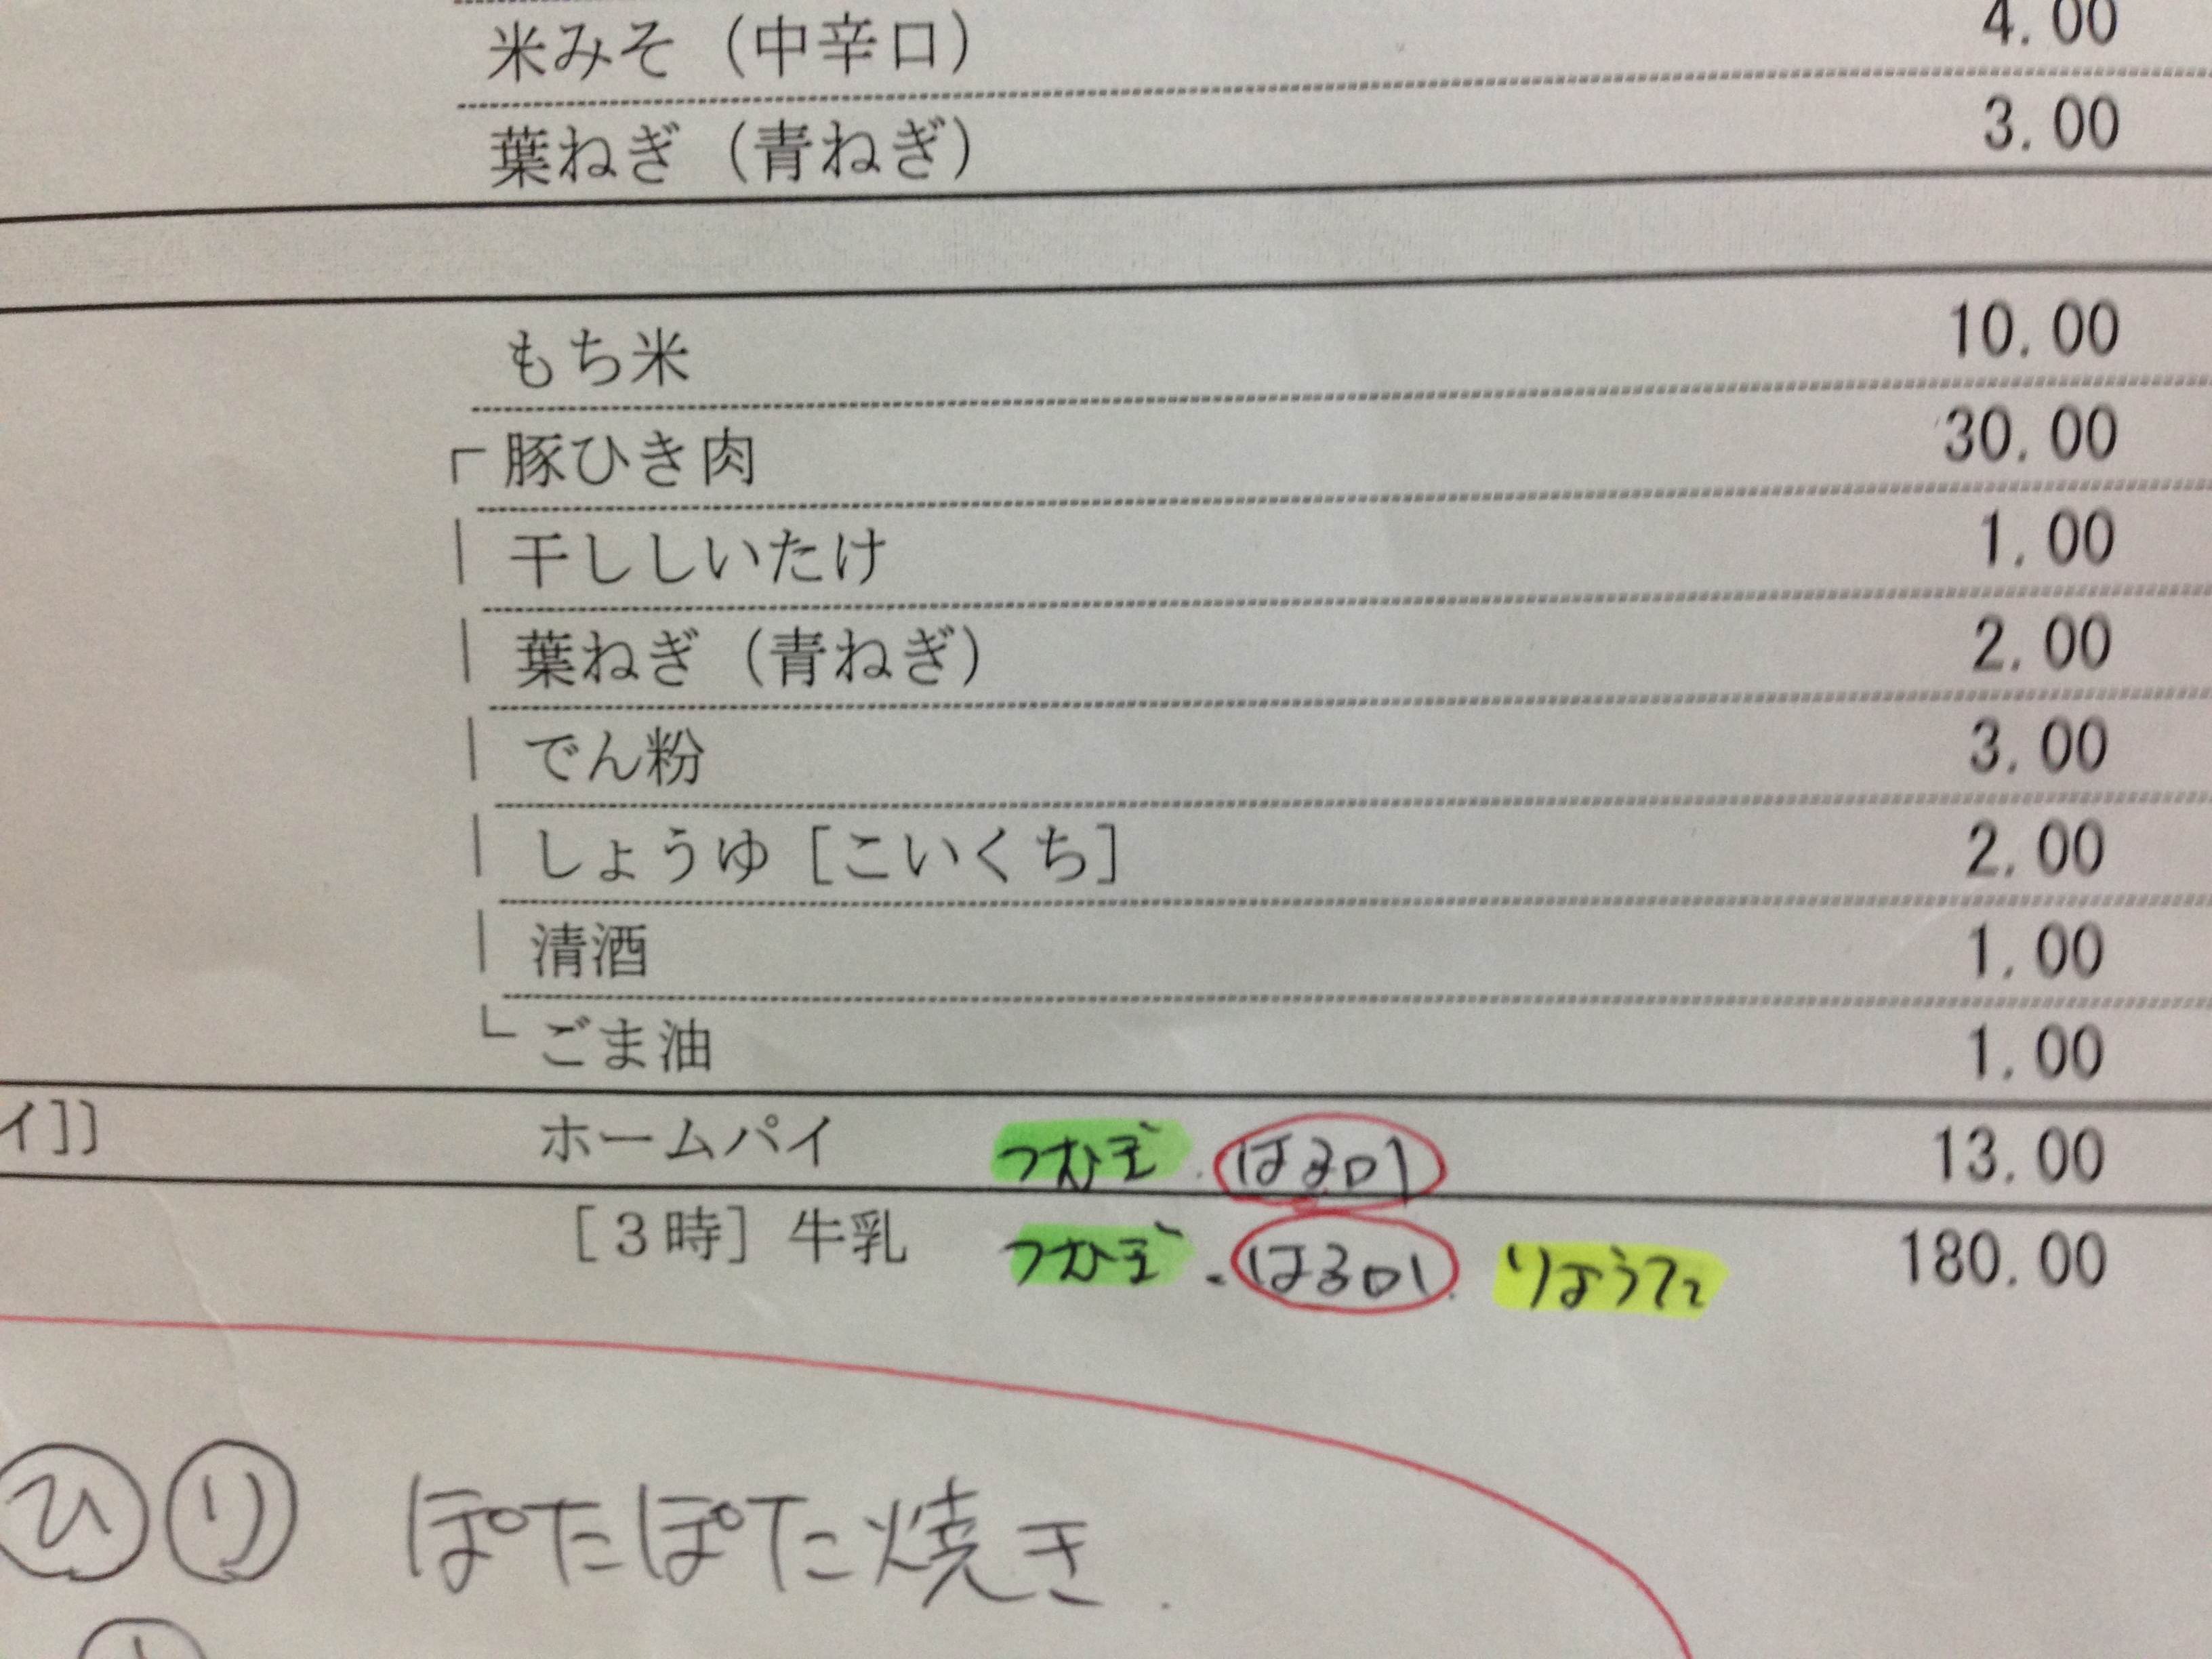 米みそ（中辛口） 4.00
葉ねぎ（青ねぎ） 3.00
もち米 10.00
┌豚ひき肉 30.00
｜干ししいたけ 1.00
｜葉ねぎ（青ねぎ） 2.00
｜でん粉 3.00
｜しょうゆ［こいくち］ 2.00
｜清酒 1.00
└ごま油 1.00
イ］］ ホームパイ つむぎ・はるひ 13.00
［３時］牛乳 つむぎ・はるひ・りょうた 180.00
ひ り ぽたぽた焼き.